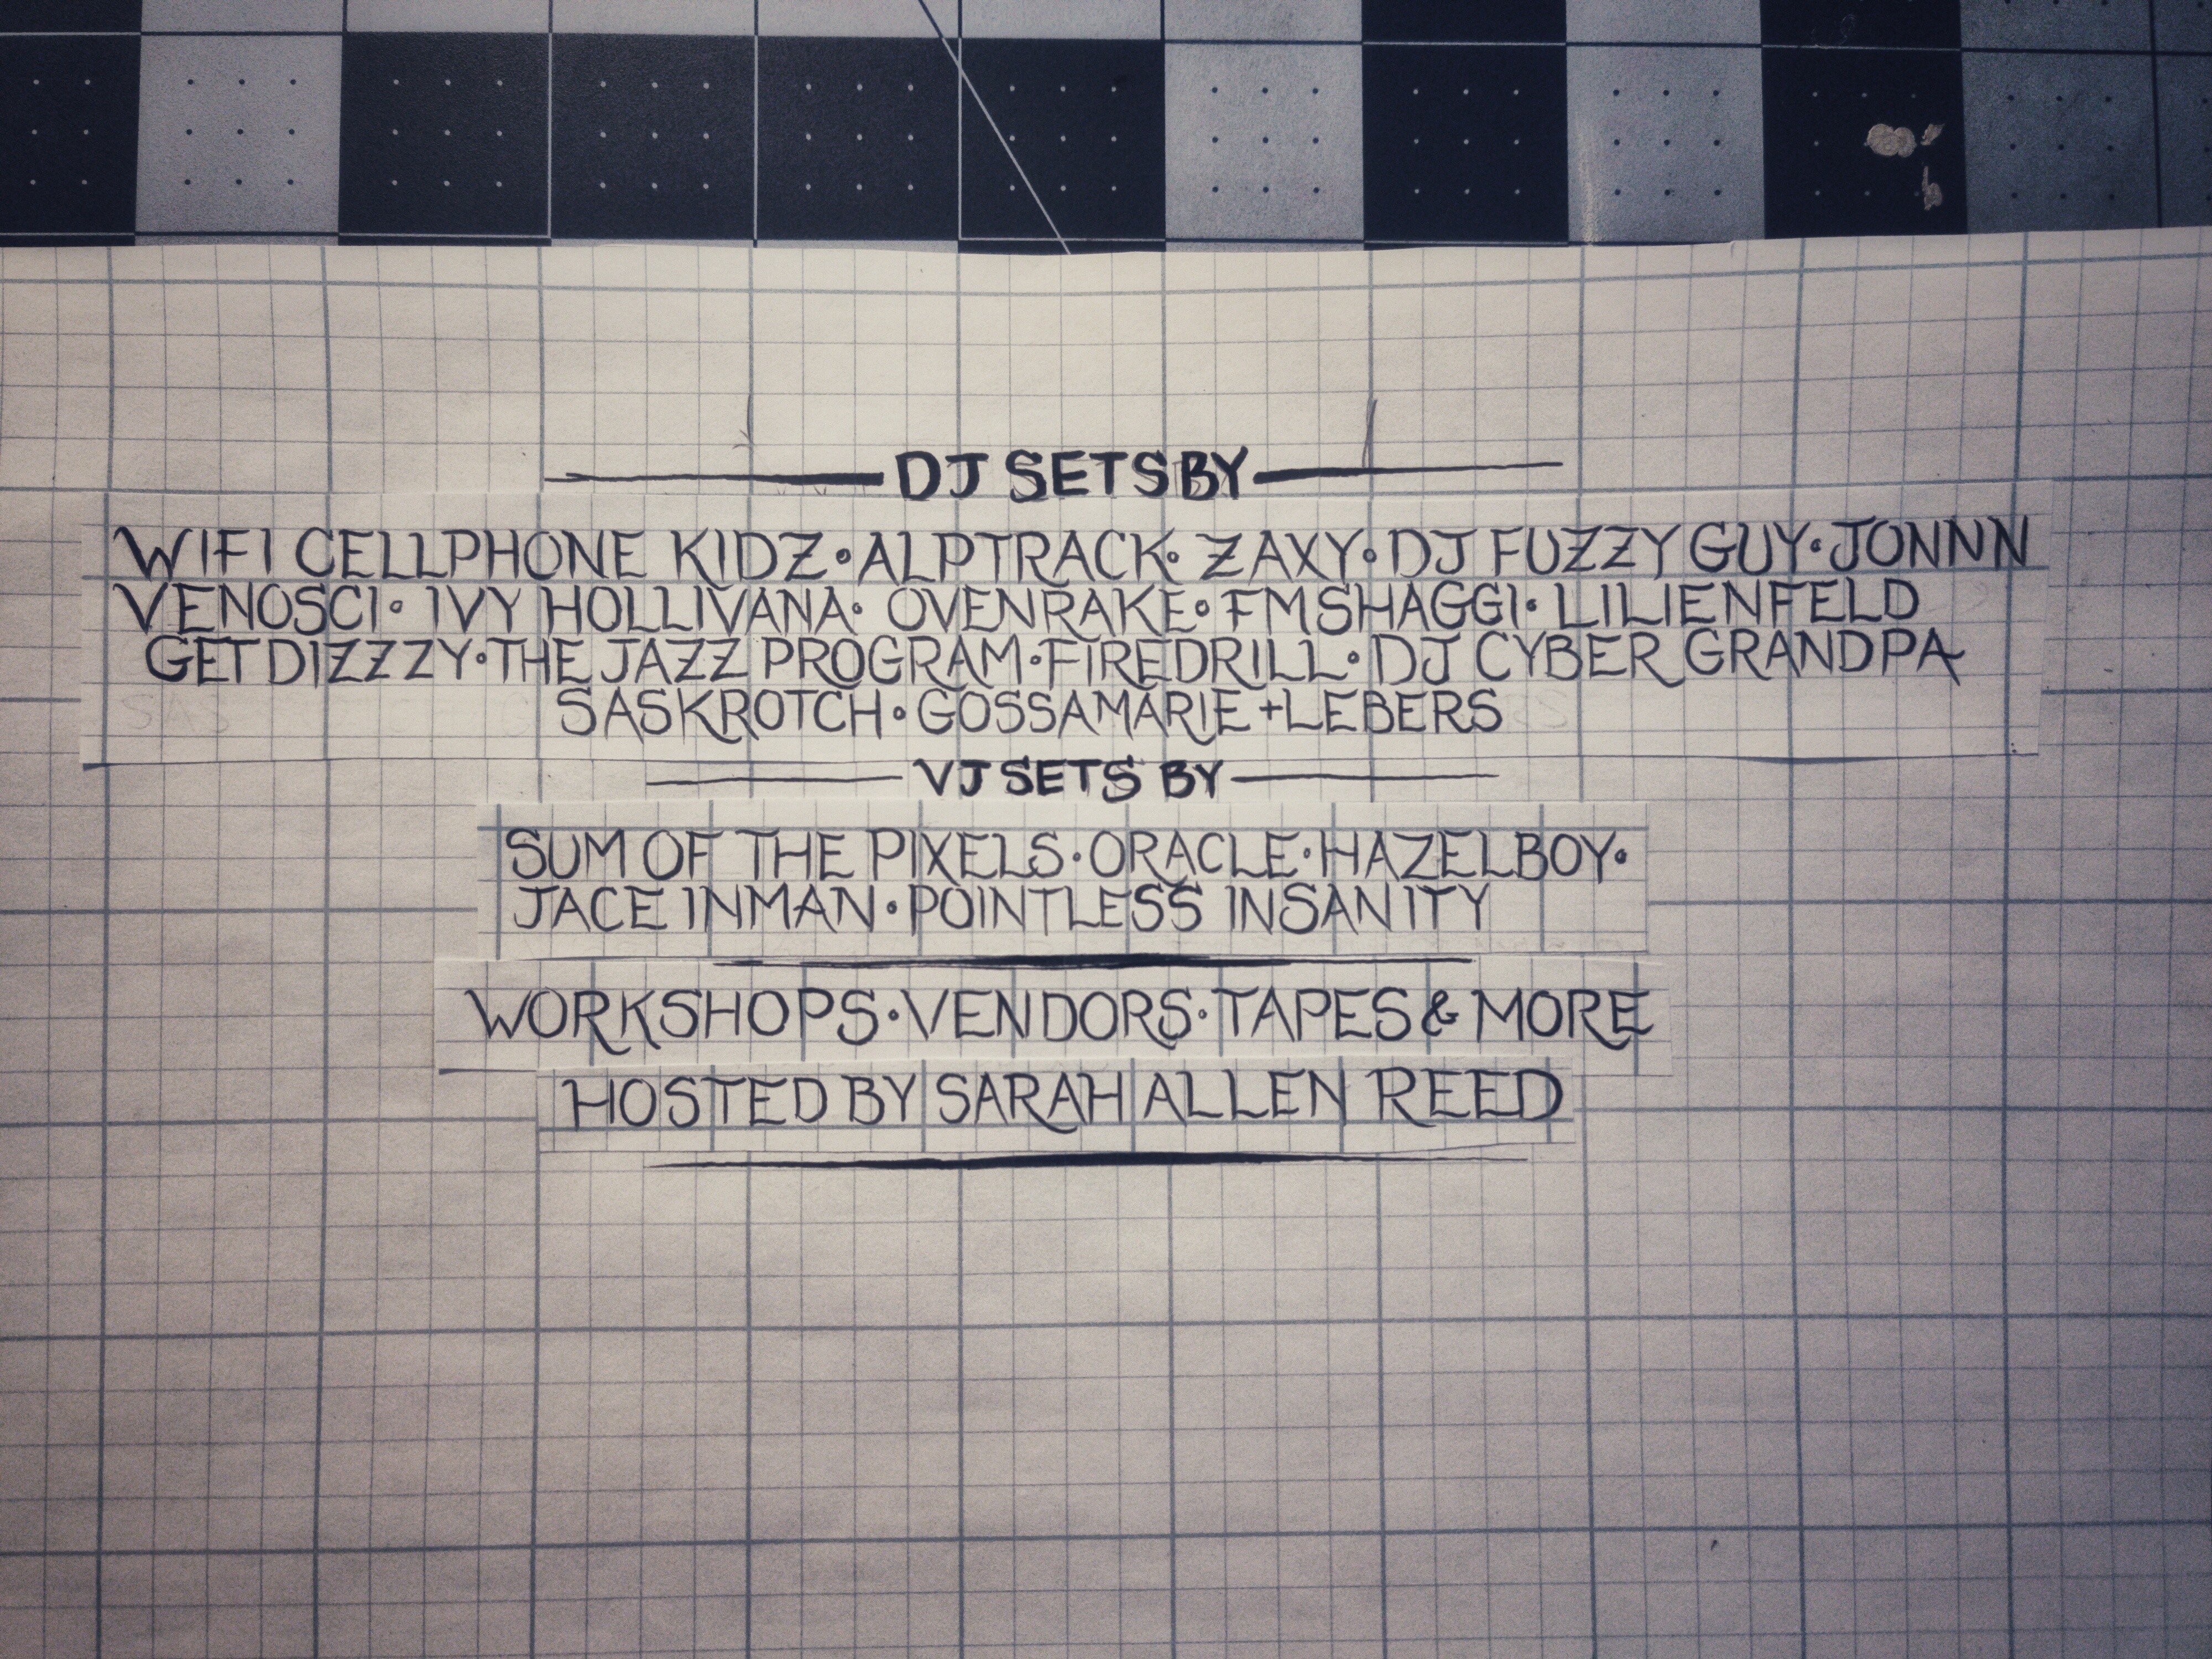 DJ SETS BY
WIFI CELLPHONE KIDZ • ALPTRACK • ZAXY • DJ FUZZY GUY • JONNN
VENOSCI • IVY HOLLIVANA • OVENRAKE • FMSHAGGI • LILIENFELD
GET DIZZZY • THE JAZZ PROGRAM • FIREDRILL • DJ CYBER GRANDPA
SASKROTCH • GOSSAMARIE + LEBERS
VJ SETS BY
SUM OF THE PIXELS • ORACLE • HAZELBOY •
JACE INMAN • POINTLESS INSANITY
WORKSHOPS • VENDORS • TAPES & MORE
HOSTED BY SARAH ALLEN REED